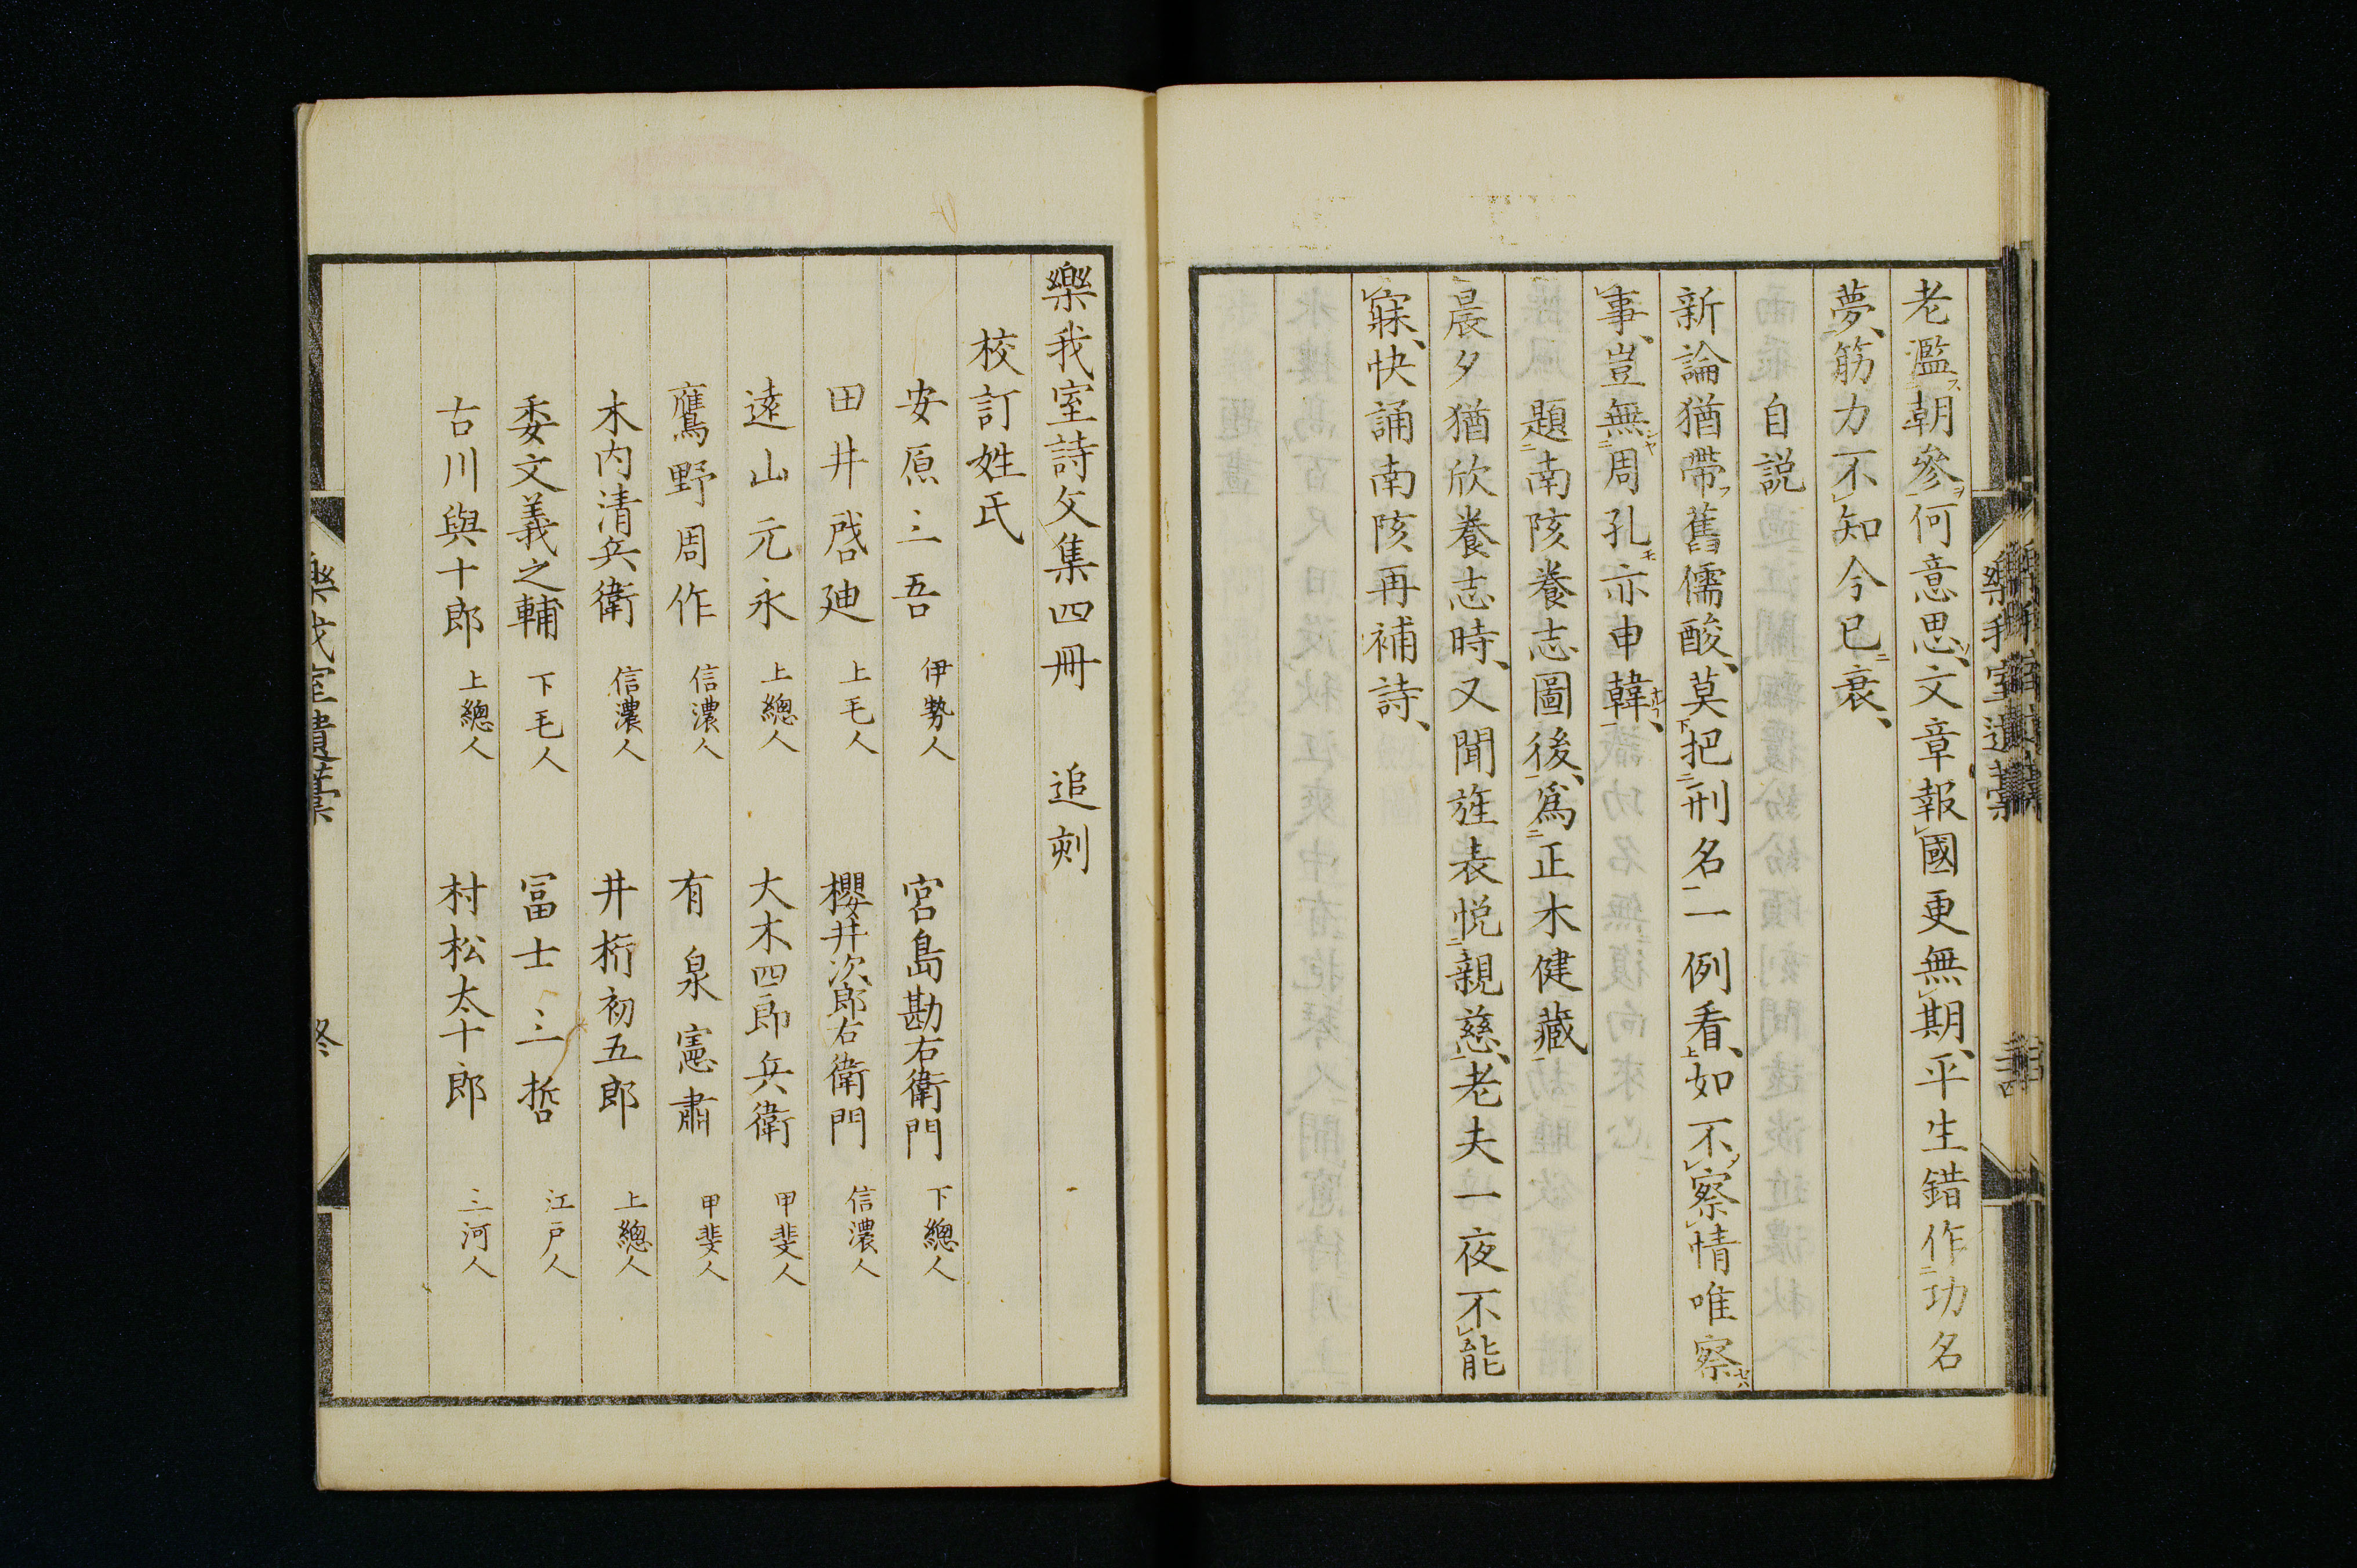 老濫朝參何意思、文章報國更無期、平生錯作功名
夢、筋力不知今已衰、
自説
新論猶帶舊儒酸、莫把刑名一一例看、如不察情唯察
事、豈無周孔亦申韓、
題南陔養志圖後、爲正木健藏
晨夕猶欣養志時、又聞旌表悦親慈、老夫一夜不能
寐、快誦南陔再補詩、
樂我室詩文集四冊 追刻
校訂姓氏
安原三吾 伊勢人 宮島勘右衛門 下總人
田井啓廸 上毛人 櫻井次郎右衛門 信濃人
遠山元永 上總人 大木四郎兵衛 甲斐人
鷹野周作 信濃人 有泉憲肅 甲斐人
木内清兵衛 信濃人 井桁初五郎 上總人
委文義之輔 下毛人 冨士三哲 江戸人
古川與十郎 上總人 村松太十郎 三河人
樂我室遺藁 終